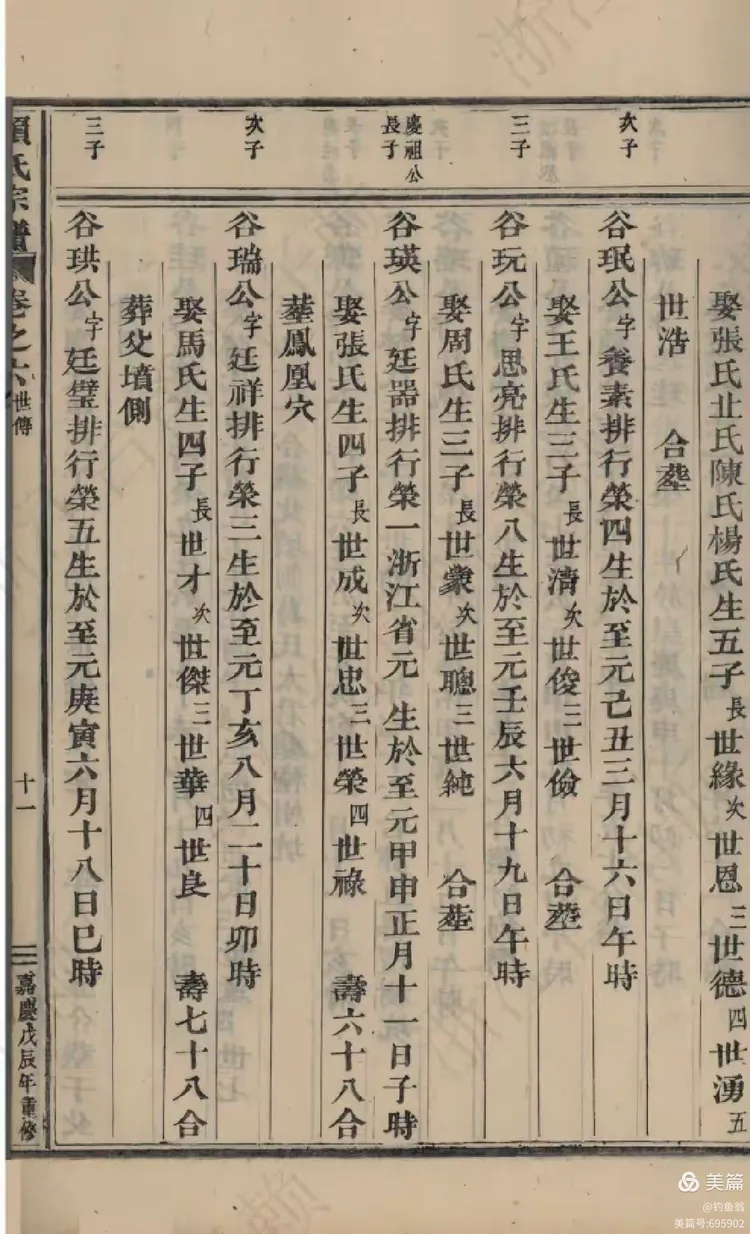 娶張氏㐀氏陳氏楊氏生五子長世緣次世恩三世德四世湧五
世浩 合塟
次子
谷珉公字養素排行榮四生於至元己丑三月十六日午時
娶王氏生三子長世濟次世俊三世儉 合塟
三子
谷玩公字思亮排行榮八生於至元壬辰六月十九日午時
娶周氏生三子長世衆次世聰三世純 合塟
慶祖公
長子
谷瑛公字廷器排行榮一浙江省元 生於至元甲申正月十一日子時
娶張氏生四子長世成次世忠三世榮四世祿 壽六十八合
塟鳳凰穴
次子
谷瑞公字廷祥排行榮三生於至元丁亥八月二十日卯時
娶馬氏生四子長世才次世傑三世華四世良 壽七十八合
葬父墳側
三子
谷珙公字廷璧排行榮五生於至元庚寅六月十八日巳時
氏宗譜 卷之六 世傳 十一 嘉慶戊辰年重修
美篇
@钓鱼翁
美篇号:695902